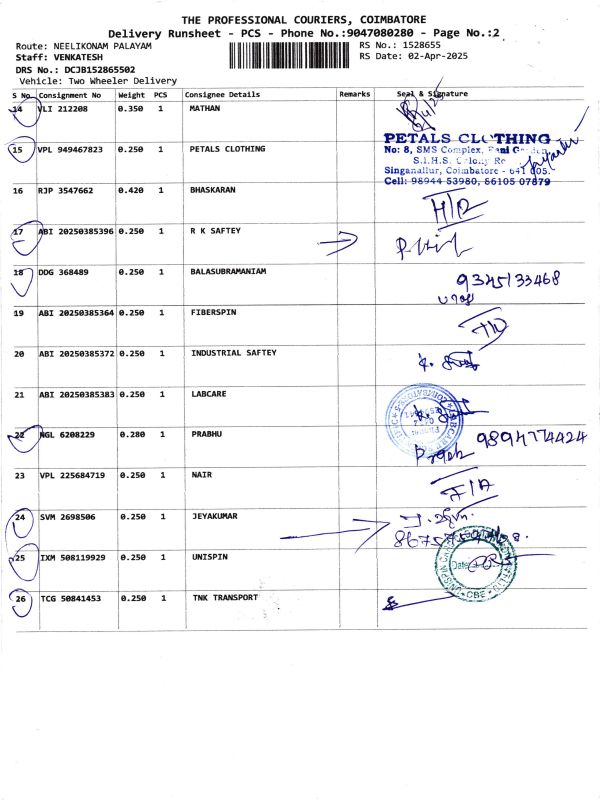 THE PROFESSIONAL COURIERS, COIMBATORE
Delivery Runsheet - PCS - Phone No.:9047080280 - Page No.:2
Route: NEELIKONAM PALAYAM
RS No.: 1528655
Staff: VENKATESH
RS Date: 02-Apr-2025
DRS No.: DCJB152865502
Vehicle: Two Wheeler Delivery
S No Consignment No Weight PCS Consignee Details Remarks Seal & Signature
14 VLI 212208 0.350 1 MATHAN
15 VPL 949467823 0.250 1 PETALS CLOTHING
PETALS CLOTHING
No: 8, SMS Complex, Rani Garden,
S.I.H.S. Colony Ro
Singanallur, Coimbatore - 641 005.
Cell: 98944 53980, 86105 07879
16 RJP 3547662 0.420 1 BHASKARAN
17 ABI 20250385396 0.250 1 R K SAFTEY
18 DDG 368489 0.250 1 BALASUBRAMANIAM
9345133468
19 ABI 20250385364 0.250 1 FIBERSPIN
20 ABI 20250385372 0.250 1 INDUSTRIAL SAFTEY
21 ABI 20250385383 0.250 1 LABCARE
22 NGL 6208229 0.280 1 PRABHU
9894774424
23 VPL 225684719 0.250 1 NAIR
24 SVM 2698506 0.250 1 JEYAKUMAR
25 IXM 508119929 0.250 1 UNISPIN
26 TCG 50841453 0.250 1 TNK TRANSPORT